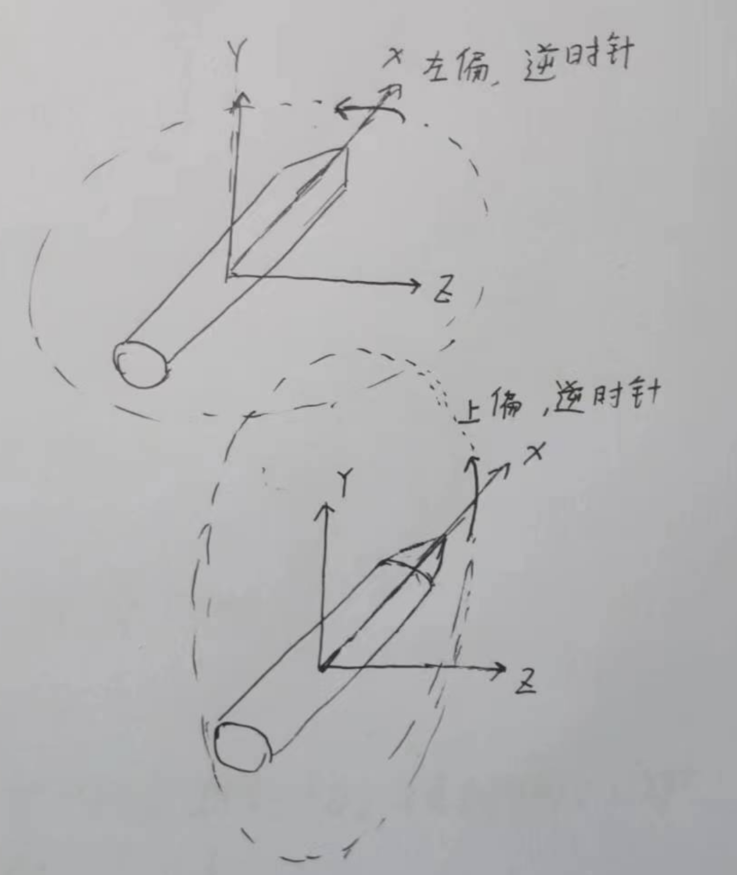 Y
X 左偏，逆时针
Z
上偏，逆时针
X
Y
Z